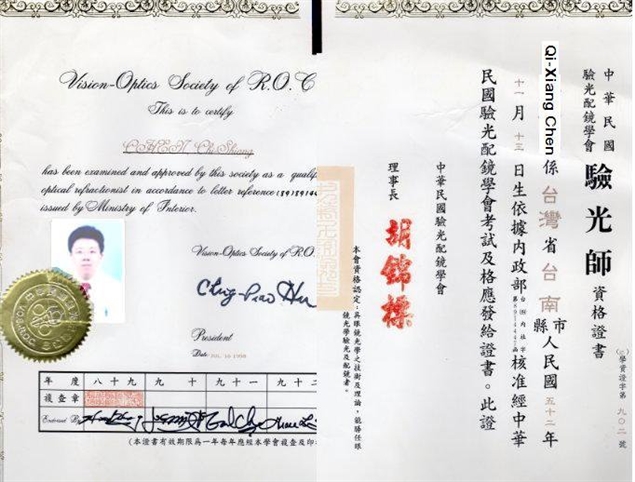 Vision-Optics Society of R.O.C
This is to certify
CHEN Chi Shiang
has been examined and approved by this society as a qualif
optical refractionist in accordance to letter reference
issued by Ministry of Interior.
Vision-Optics Society of R.O.
President
Date
年度 八十九 九十 九十一 九十二
複查章
Endorsed By
(本證書有效期限為一年每年應經本學會複查及印
中華民國
驗光配鏡學會
驗光師
資格證書
(七)學資證字第九〇二號
Qi-Xiang Chen
係台灣省台南縣市人民國五十二年
十一月十三日生依據內政部
核准經中華
民國驗光配鏡學會考試及格應發給證書。此證
中華民國驗光配鏡學會
理事長
胡錦標
本會資格認定：具眼鏡光學之技術及理論，能勝任眼
鏡光學驗光及配鏡者。